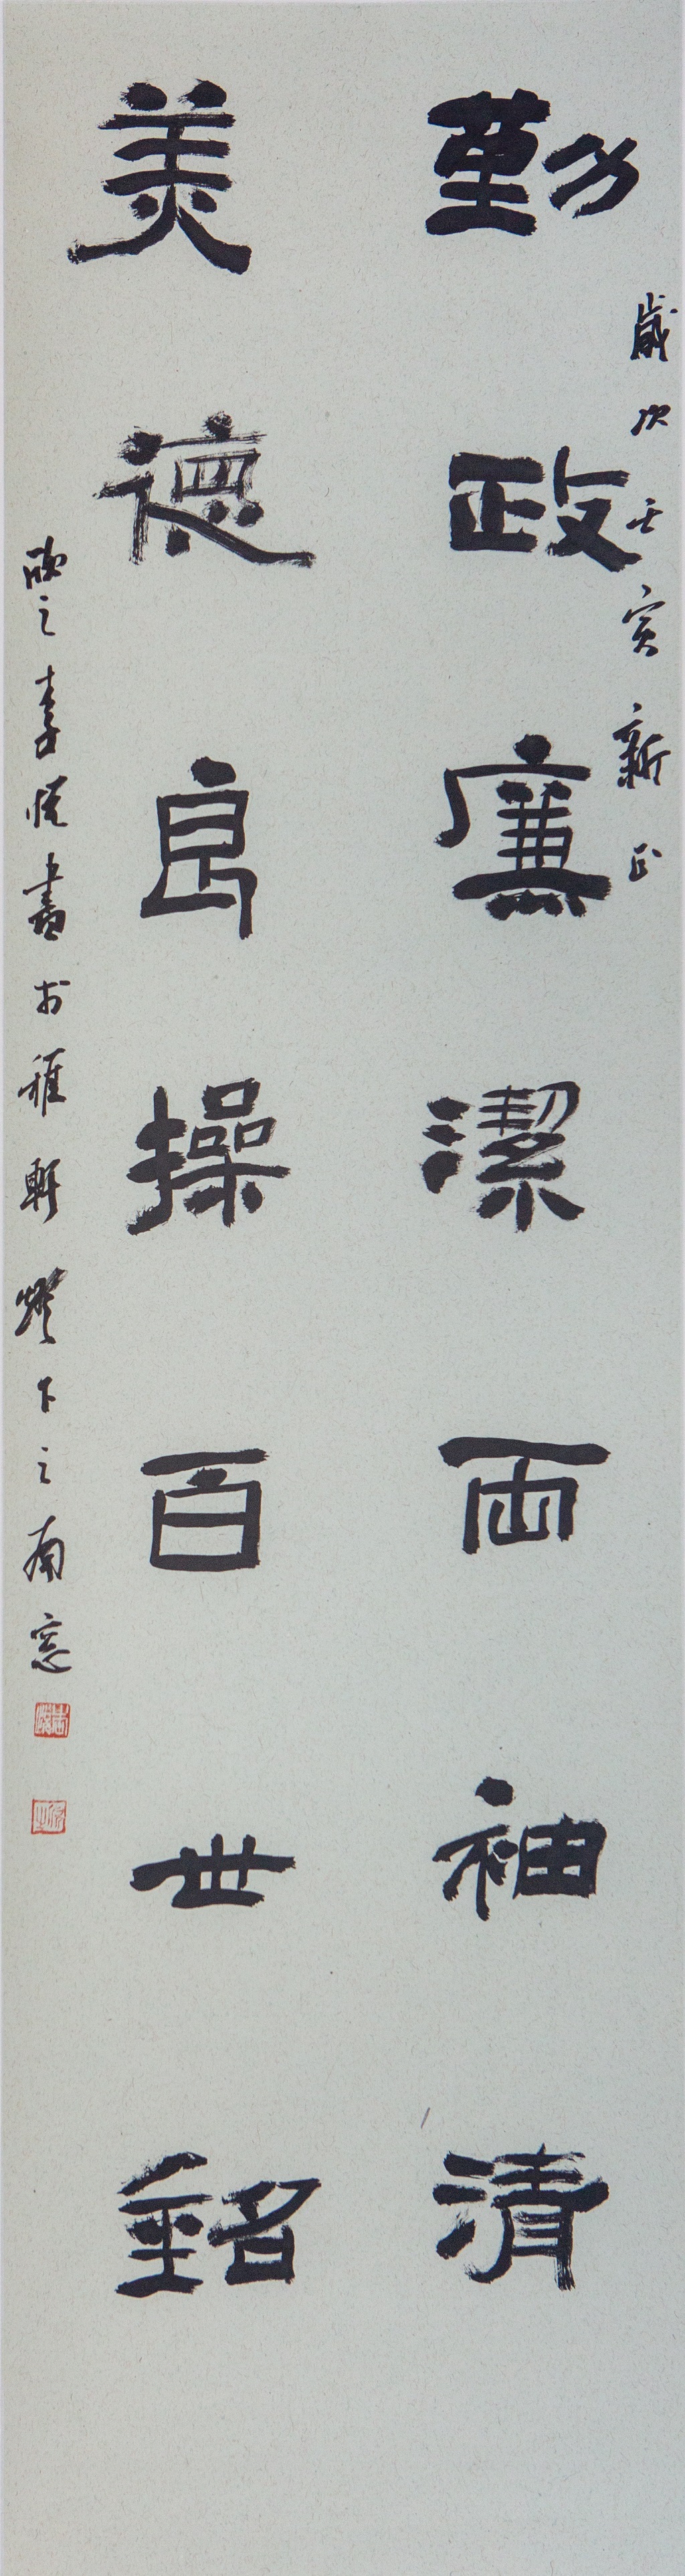 勤政廉潔兩袖清
歲次壬寅新正
美德良操百世銘
之李悅書於雅軒燈下之南窓